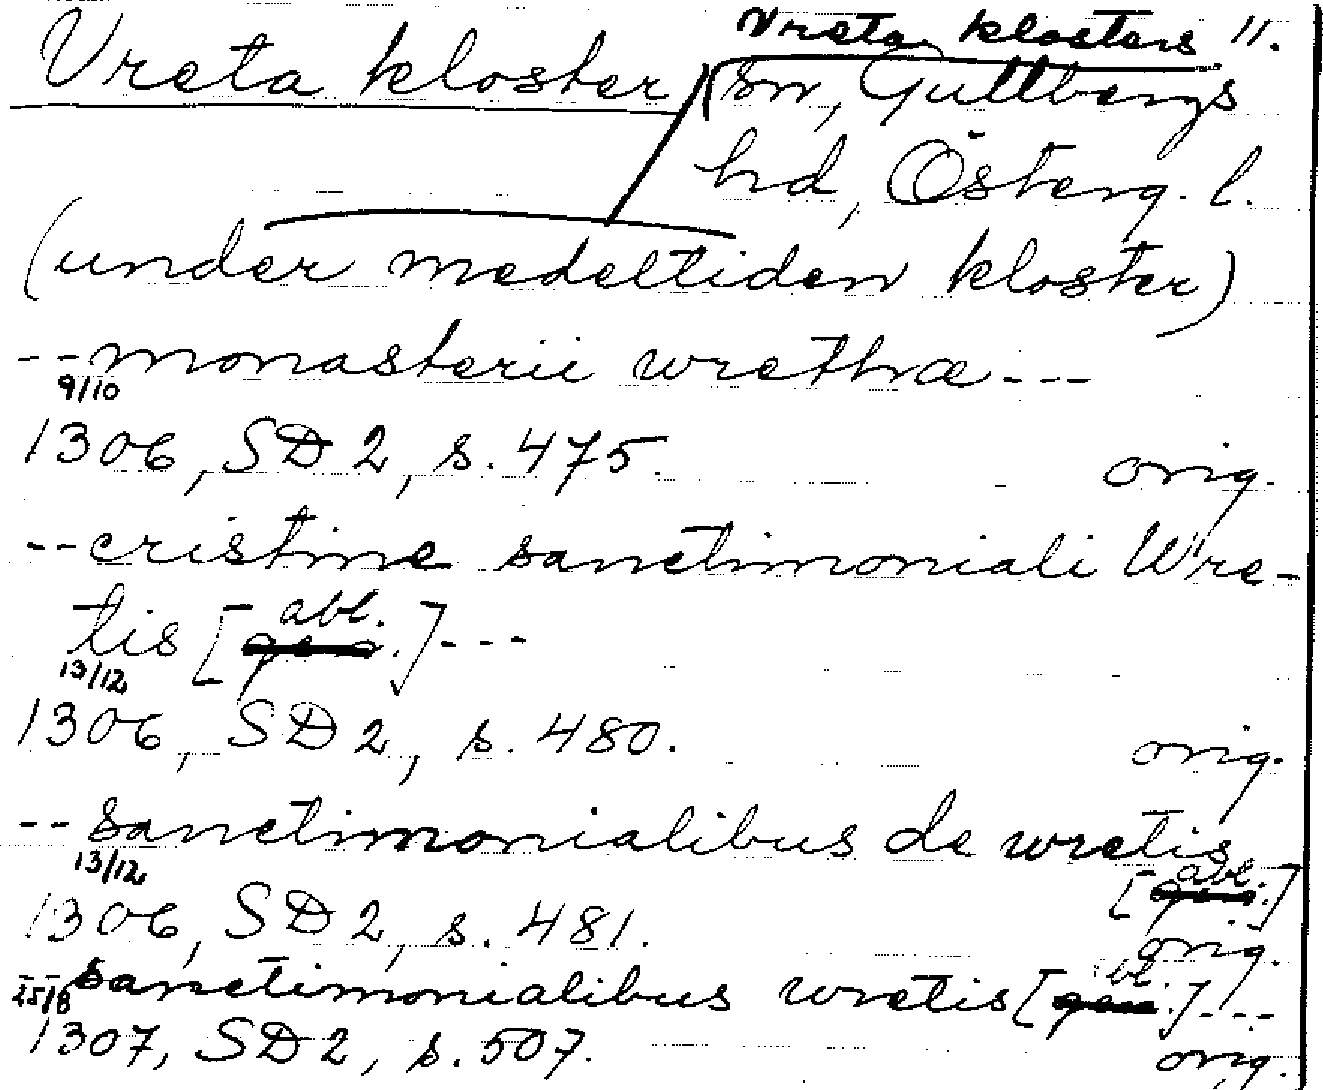 Vreta klosters 11.
Vreta kloster sn, Gullbergs
hd, Österg. l.
(under medeltiden kloster)
-- monasterii wrethæ ---
9/10
1306, SD 2, s. 475. orig.
-- cristine sanctimoniali Wre-
tis [abl.] ---
13/12
1306, SD 2, s. 480. orig.
-- sanctimonialibus de wretis
13/12 [abl.]
1306, SD 2, s. 481. orig.
-- sanctimonialibus wretis [abl.] ---
25/8
1307, SD 2, s. 507. orig.